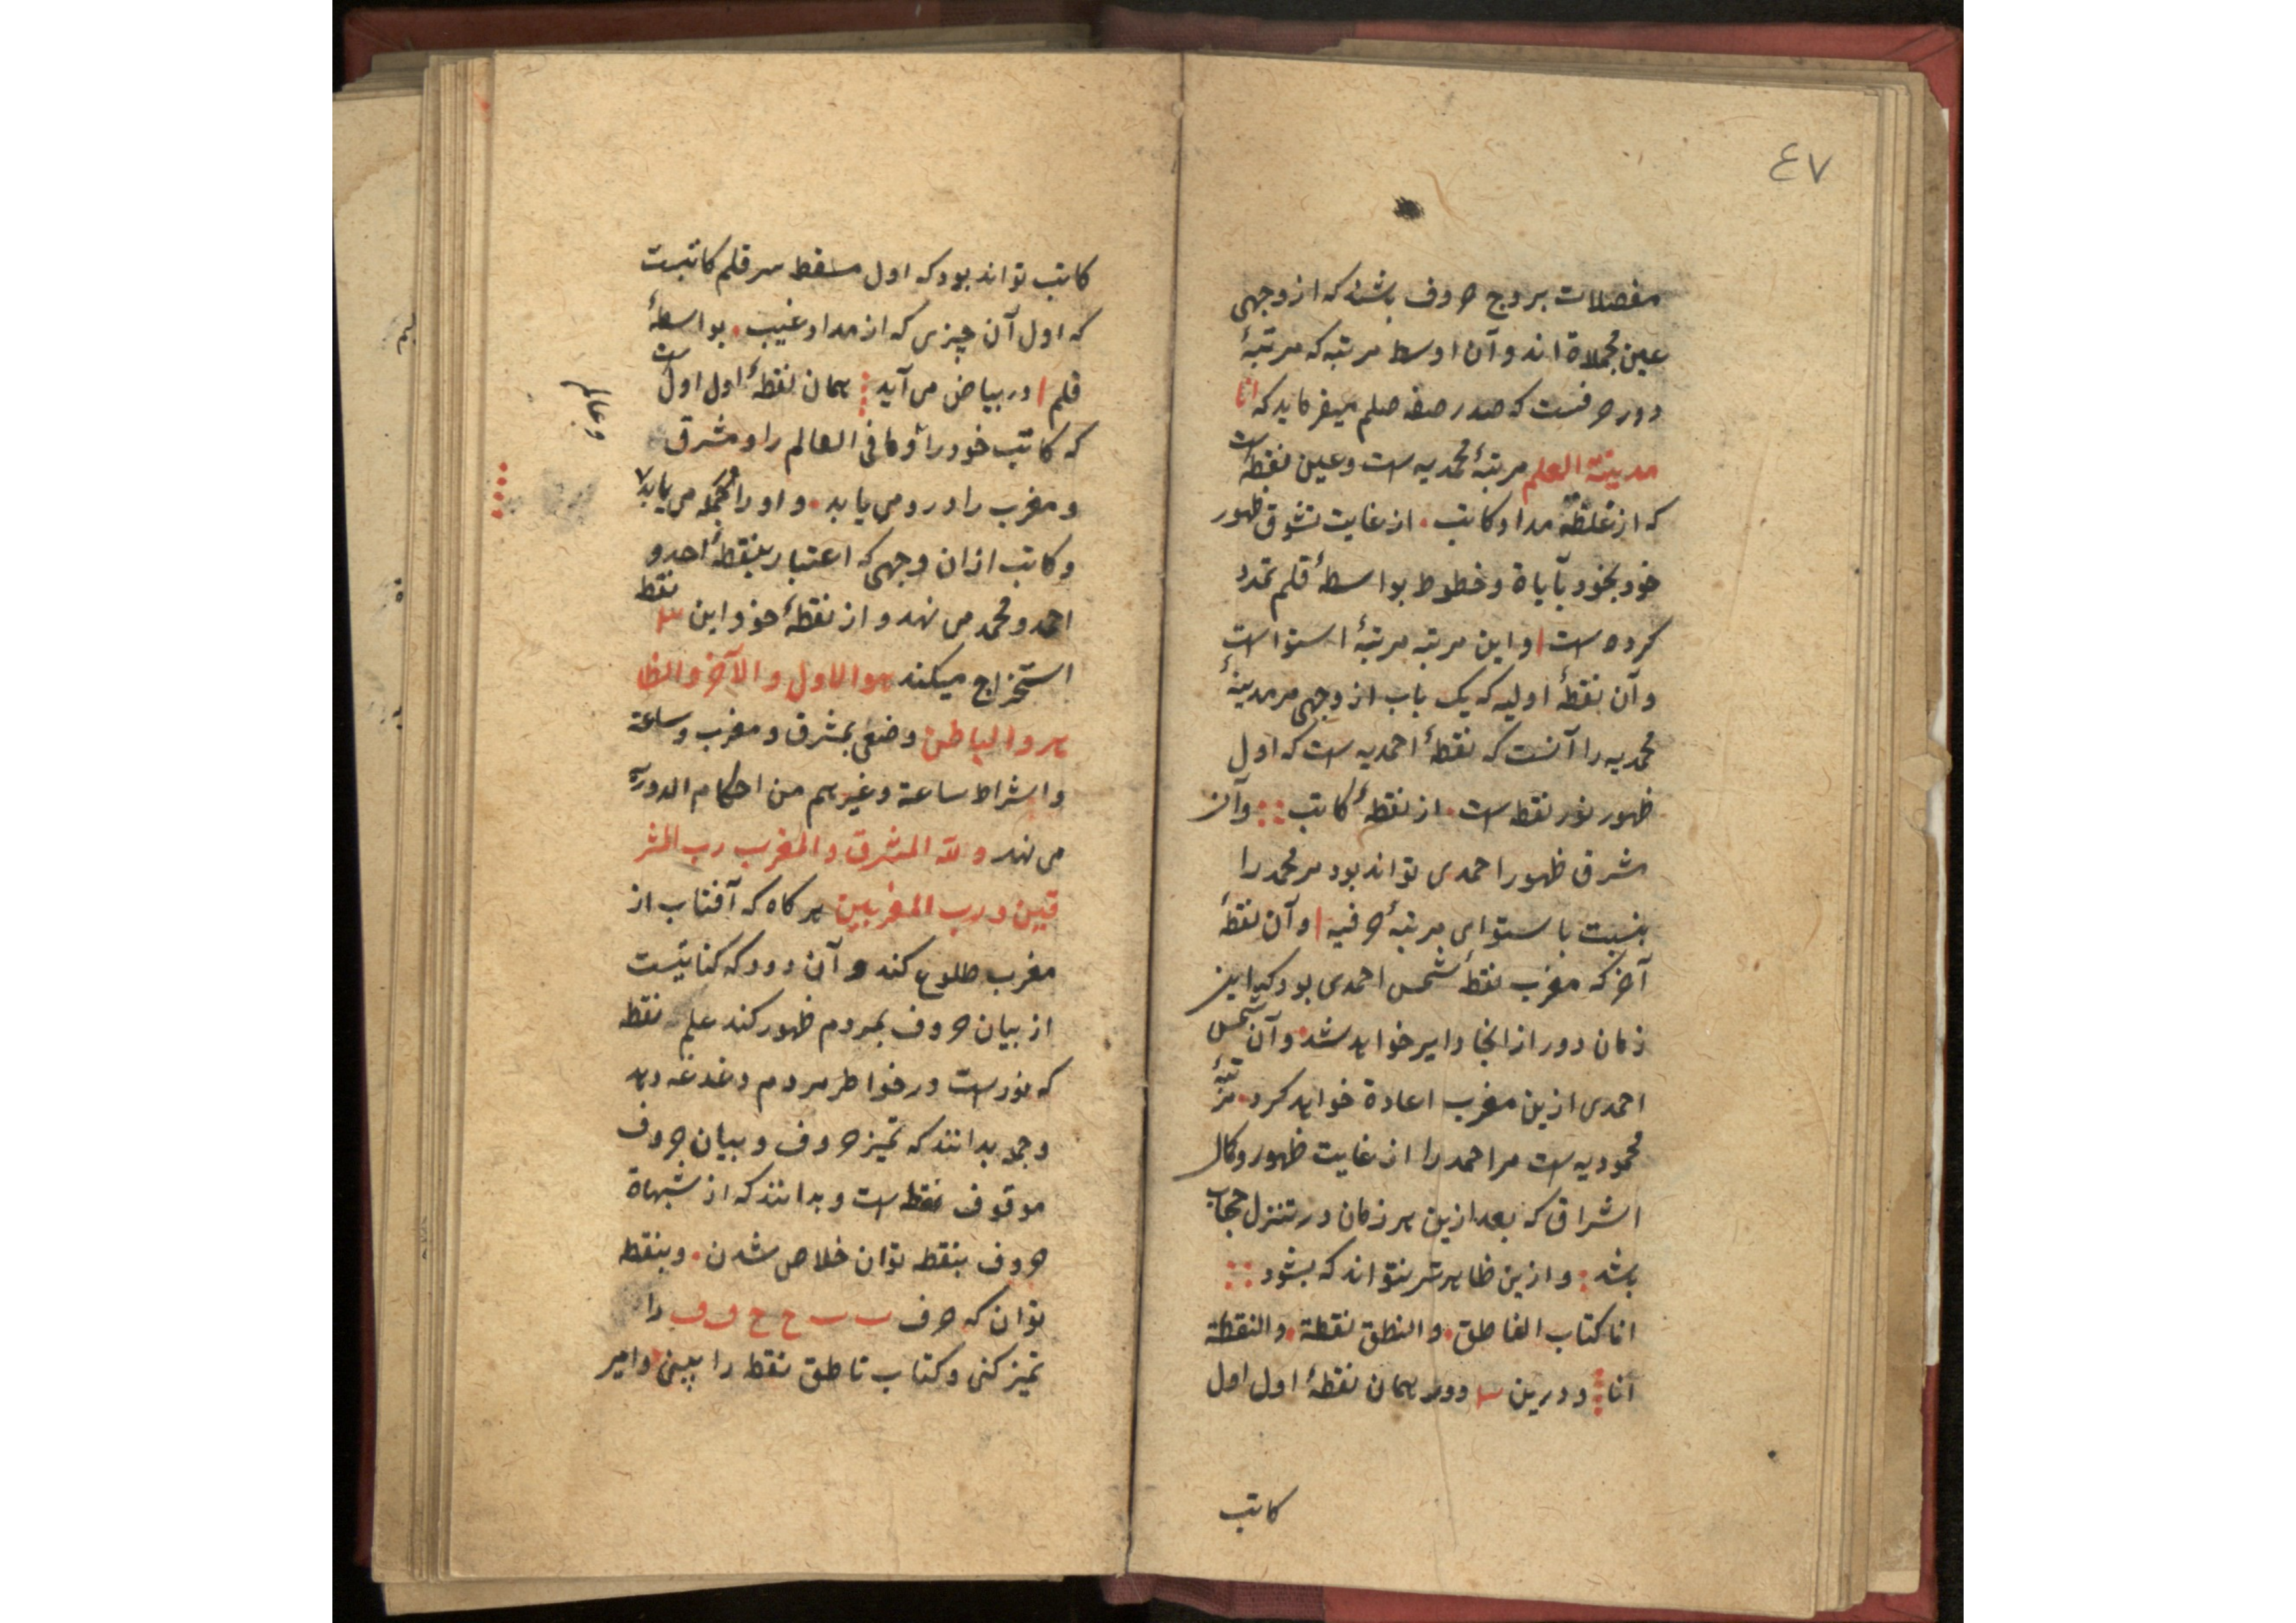 ٤٧
مفصلات بروج حروف باشند که از وجهی
عین مجملاة اند و آن اوسط مرتبه که مرتبهٔ
دور حرفست که صدر صفه صلم میفرماید که انا
مدینة العلم مرتبهٔ محمدیه است و عین نقطه است
که از نقطهٔ مداد کاتب . از غایت تشوق ظهور
خود بخود بآیاة و خطوط بواسطهٔ قلم تمدد
کرده است و این مرتبه مرتبهٔ استوا است
و آن نقطهٔ اولیه که یک باب از وجهی مر مدینهٔ
محمدیه را آنست که نقطهٔ احمدیه است که اول
ظهور نور نقطه است . از نقطهٔ کاتب :: و آن
مشرق ظهور احمدی تواند بود مر محمد را
بنسبت با ستوای مرتبهٔ حرفیه و آن نقطهٔ
آخر که مغرب نقطهٔ شمس احمدی بود که این
زمان دور از انجا دایر خواهد شد . و آن شمس
احمدی ازین مغرب اعادة خواهد کرد . مرتبهٔ
محمودیه است مر احمد را از غایت ظهور و کمال
اشراق که بعد ازین هر زمان در تنزل حجاب
باشد : و ازین ظاهرتر نتواند که بشود ::
انا کتاب الناطق . و النطق نقطة . و النقطة
انا و درین ۳ دور همان نقطهٔ اول اول
کاتب
کاتب تواند بود که اول مسقط سر قلم کاتبست
که اول آن چیزی که از مداد غیب . بواسطهٔ
قلم در بیاض می آید همان نقطهٔ اول اول است
که کاتب خود را و ما فی العالم را و مشرق
و عالم
و مغرب را درو می یابد . و او را محمد می یابد
و کاتب ازان وجهی که اعتبار بنقطهٔ احد و
احمد و محمد می نهد و از نقطهٔ خود این ۳ نقطه
استخراج میکند هو الاول و الآخر و الظا
هر و الباطن وضعی بمشرق و مغرب و ساعة
و اشراط ساعة و غیرهم من احکام الدورة
می نهد و لله المشرق و المغرب رب المشر
قین و رب المغربین هر کاه که آفتاب از
مغرب طلوع کند و آن دود که کنایتست
از بیان حروف بمردم ظهور کند علم نقطه
که نور است در خواطر مردم دغدغه دهد
و جمله بدانند که تمیز حروف و بیان حروف
موقوف نقطه است و بدانند که از شبهاة
حروف بنقطه توان خلاص شدن . و بنقطه
توان که حرف ٮ ٮ ح ح ڡ ڡ را
تمیز کنی و کتاب ناطق نقطه را ببینی و امیر